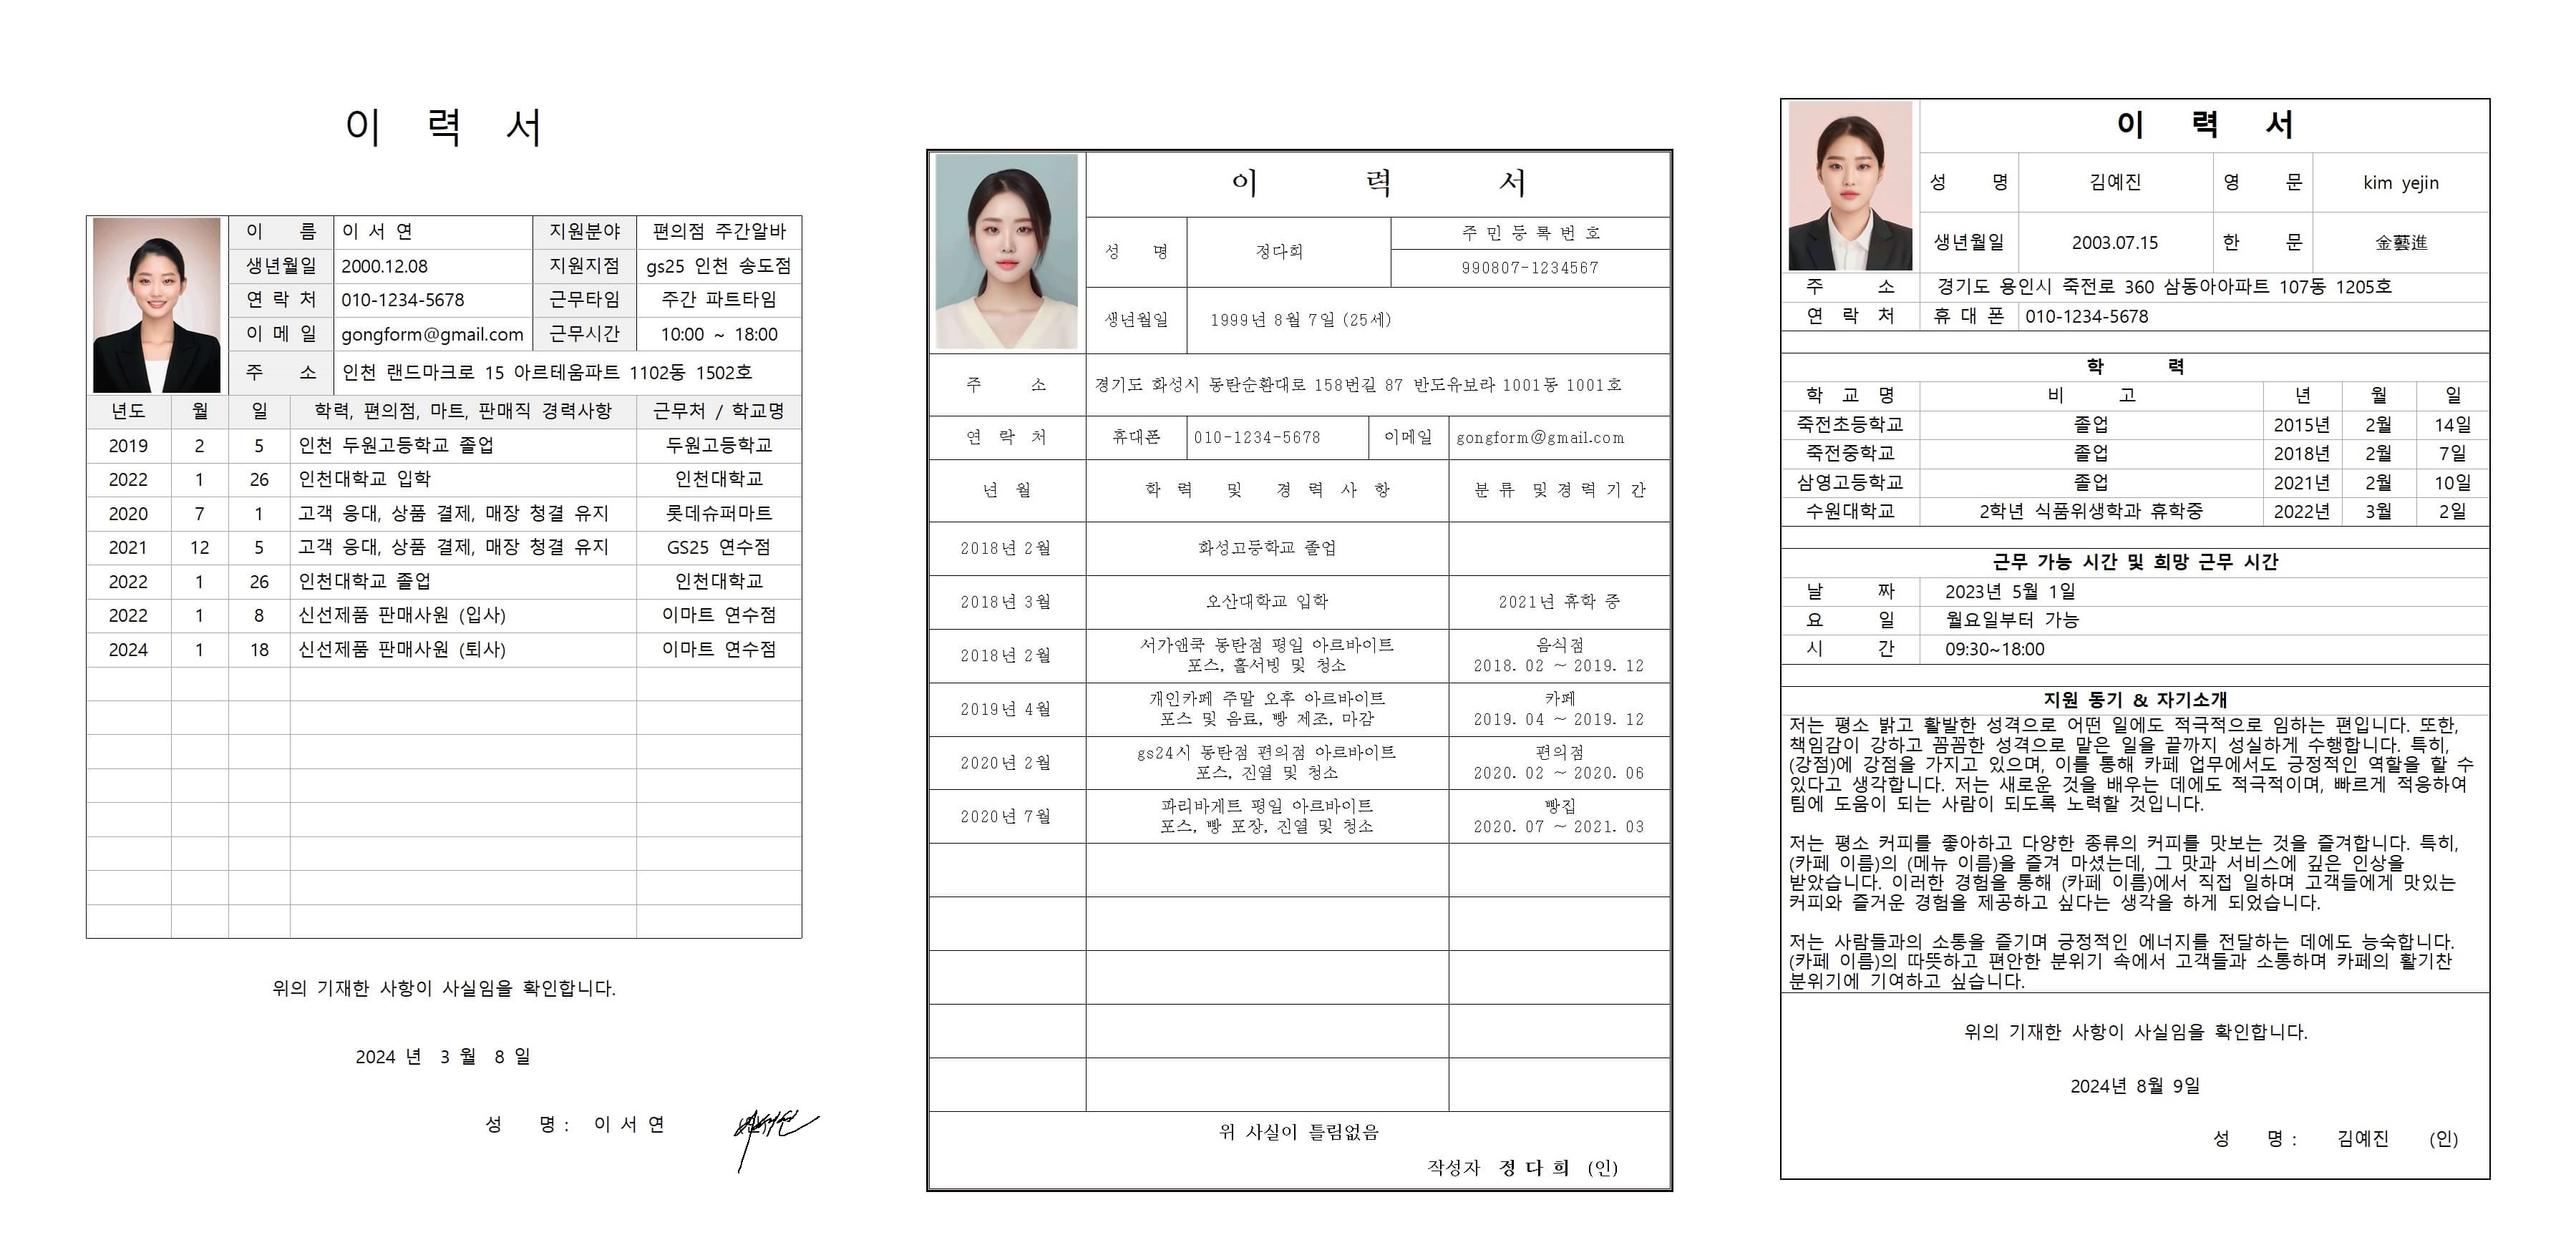 이 력 서
이 름 이 서 연 지원분야 편의점 주간알바
생년월일 2000.12.08 지원지점 gs25 인천 송도점
연 락 처 010-1234-5678 근무타임 주간 파트타임
이 메 일 gongform@gmail.com 근무시간 10:00 ~ 18:00
주 소 인천 랜드마크로 15 아르테움파트 1102동 1502호
년도 월 일 학력, 편의점, 마트, 판매직 경력사항 근무처 / 학교명
2019 2 5 인천 두원고등학교 졸업 두원고등학교
2022 1 26 인천대학교 입학 인천대학교
2020 7 1 고객 응대, 상품 결제, 매장 청결 유지 롯데슈퍼마트
2021 12 5 고객 응대, 상품 결제, 매장 청결 유지 GS25 연수점
2022 1 26 인천대학교 졸업 인천대학교
2022 1 8 신선제품 판매사원 (입사) 이마트 연수점
2024 1 18 신선제품 판매사원 (퇴사) 이마트 연수점
위의 기재한 사항이 사실임을 확인합니다.
2024 년 3 월 8 일
성 명 : 이 서 연
이 력 서
성 명 정다희 주 민 등 록 번 호
990807-1234567
생년월일 1999년 8월 7일 (25세)
주 소 경기도 화성시 동탄순환대로 158번길 87 반도유보라 1001동 1001호
연 락 처 휴대폰 010-1234-5678 이메일 gongform@gmail.com
년 월 학 력 및 경 력 사 항 분 류 및 경 력 기 간
2018년 2월 화성고등학교 졸업
2018년 3월 오산대학교 입학 2021년 휴학 중
2018년 2월 서가앤쿡 동탄점 평일 아르바이트 음식점
포스, 홀서빙 및 청소 2018. 02 ~ 2019. 12
2019년 4월 개인카페 주말 오후 아르바이트 카페
포스 및 음료, 빵 제조, 마감 2019. 04 ~ 2019. 12
2020년 2월 gs24시 동탄점 편의점 아르바이트 편의점
포스, 진열 및 청소 2020. 02 ~ 2020. 06
2020년 7월 파리바게트 평일 아르바이트 빵집
포스, 빵 포장, 진열 및 청소 2020. 07 ~ 2021. 03
위 사실이 틀림없음
작성자 정 다 희 (인)
이 력 서
성 명 김예진 영 문 kim yejin
생년월일 2003.07.15 한 문 金藝進
주 소 경기도 용인시 죽전로 360 삼동아아파트 107동 1205호
연 락 처 휴 대 폰 010-1234-5678
학 력
학 교 명 비 고 년 월 일
죽전초등학교 졸업 2015년 2월 14일
죽전중학교 졸업 2018년 2월 7일
삼영고등학교 졸업 2021년 2월 10일
수원대학교 2학년 식품위생학과 휴학중 2022년 3월 2일
근무 가능 시간 및 희망 근무 시간
날 짜 2023년 5월 1일
요 일 월요일부터 가능
시 간 09:30~18:00
지원 동기 & 자기소개
저는 평소 밝고 활발한 성격으로 어떤 일에도 적극적으로 임하는 편입니다. 또한,
책임감이 강하고 꼼꼼한 성격으로 맡은 일을 끝까지 성실하게 수행합니다. 특히,
(강점)에 강점을 가지고 있으며, 이를 통해 카페 업무에서도 긍정적인 역할을 할 수
있다고 생각합니다. 저는 새로운 것을 배우는 데에도 적극적이며, 빠르게 적응하여
팀에 도움이 되는 사람이 되도록 노력할 것입니다.
저는 평소 커피를 좋아하고 다양한 종류의 커피를 맛보는 것을 즐겨합니다. 특히,
(카페 이름)의 (메뉴 이름)을 즐겨 마셨는데, 그 맛과 서비스에 깊은 인상을
받았습니다. 이러한 경험을 통해 (카페 이름)에서 직접 일하며 고객들에게 맛있는
커피와 즐거운 경험을 제공하고 싶다는 생각을 하게 되었습니다.
저는 사람들과의 소통을 즐기며 긍정적인 에너지를 전달하는 데에도 능숙합니다.
(카페 이름)의 따뜻하고 편안한 분위기 속에서 고객들과 소통하며 카페의 활기찬
분위기에 기여하고 싶습니다.
위의 기재한 사항이 사실임을 확인합니다.
2024년 8월 9일
성 명 : 김예진 (인)